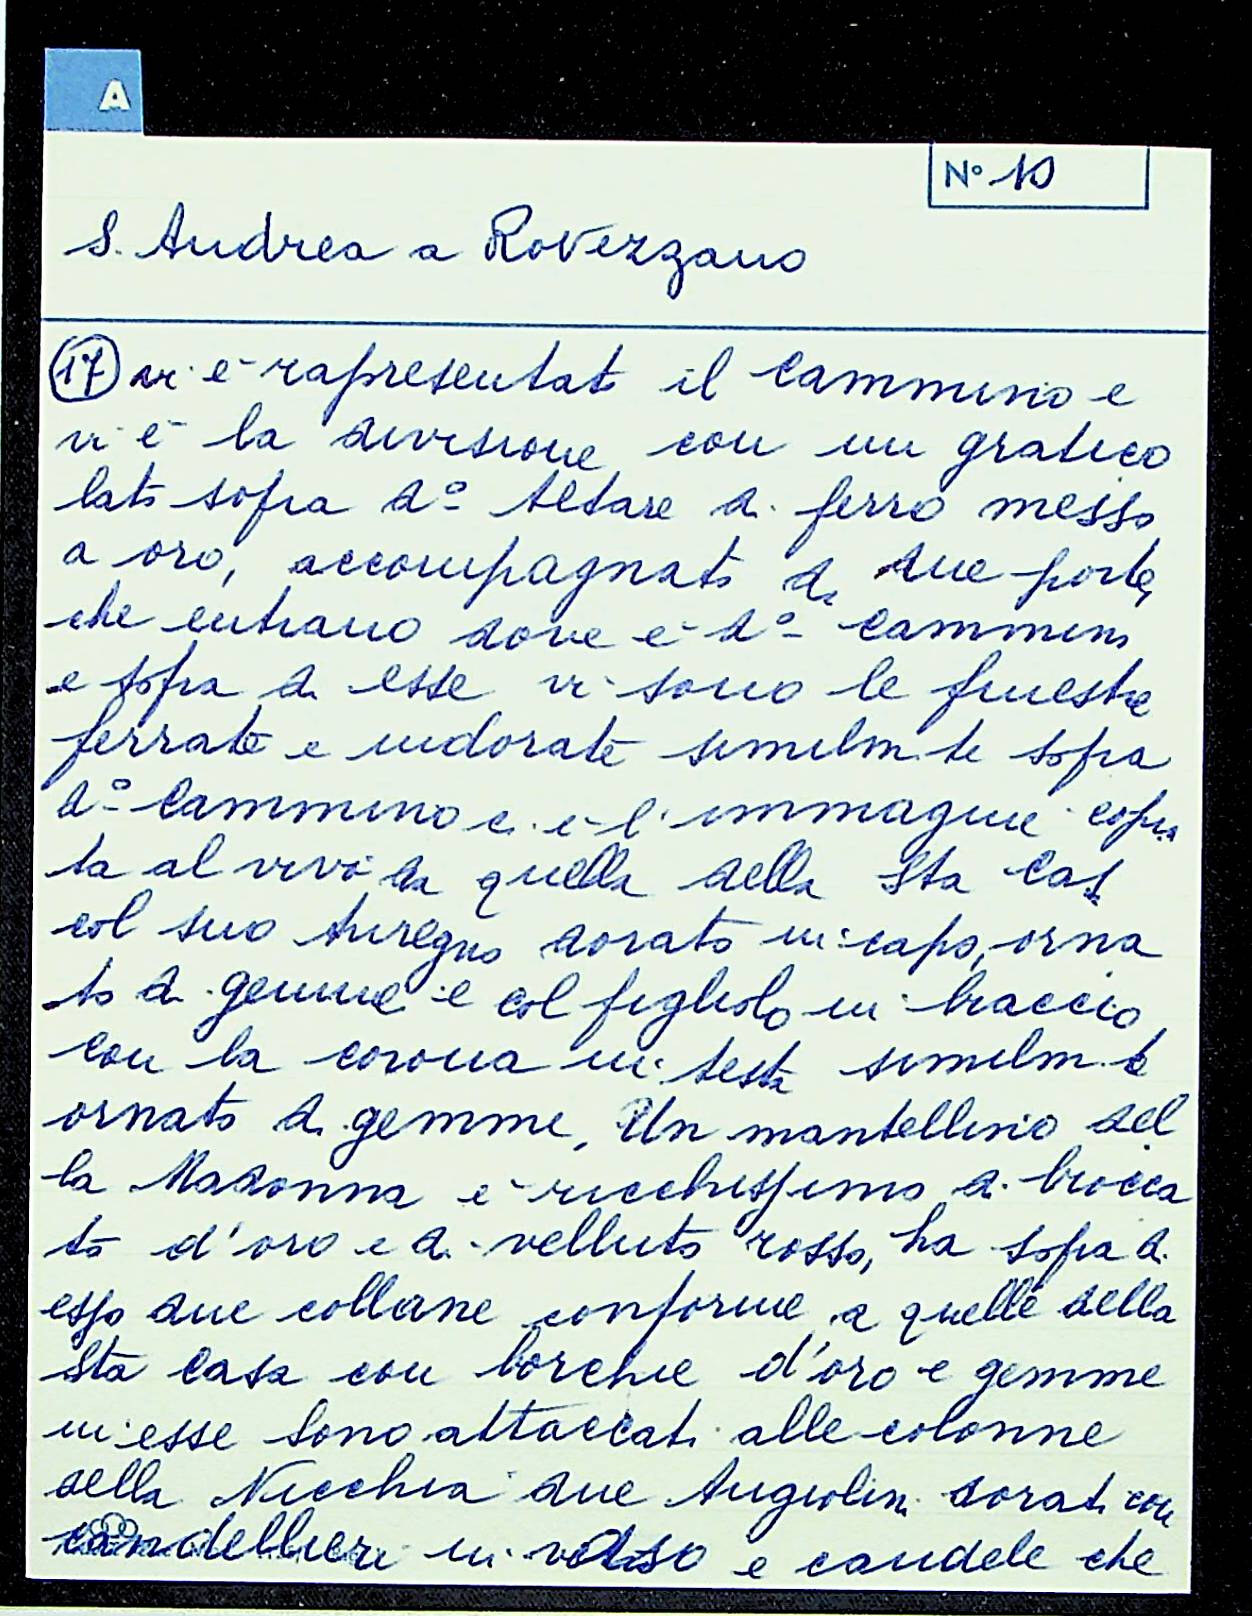 A
N° 10
S. Andrea a Rovezzano
17 vi è rapresentato il Cammino e
vi è la divisione con un gratico
lato sopra d° Altare di ferro messo
a oro, accompagnato da due porte,
che entrano dove è d° Cammino
e sopra di esse vi sono le finestre
ferrate e indorate similm.te sopra
d° Cammino c. è l'immagine copia
ta al vivo da quella della Sta Casa
col suo Triregno dorato in capo, orna
to di gemme e col figliolo in braccio,
con la corona in testa similm.te
ornato di gemme, Un mantellino del
la Madonna è ricchissimo di brocca
to d'oro e di velluto rosso, ha sopra di
esso due collane conforme a quelle della
Sta Casa con borchie d'oro e gemme
in esse sono attaccati alle colonne
della Nicchia due Angiolini dorati con
candellieri in e candele che